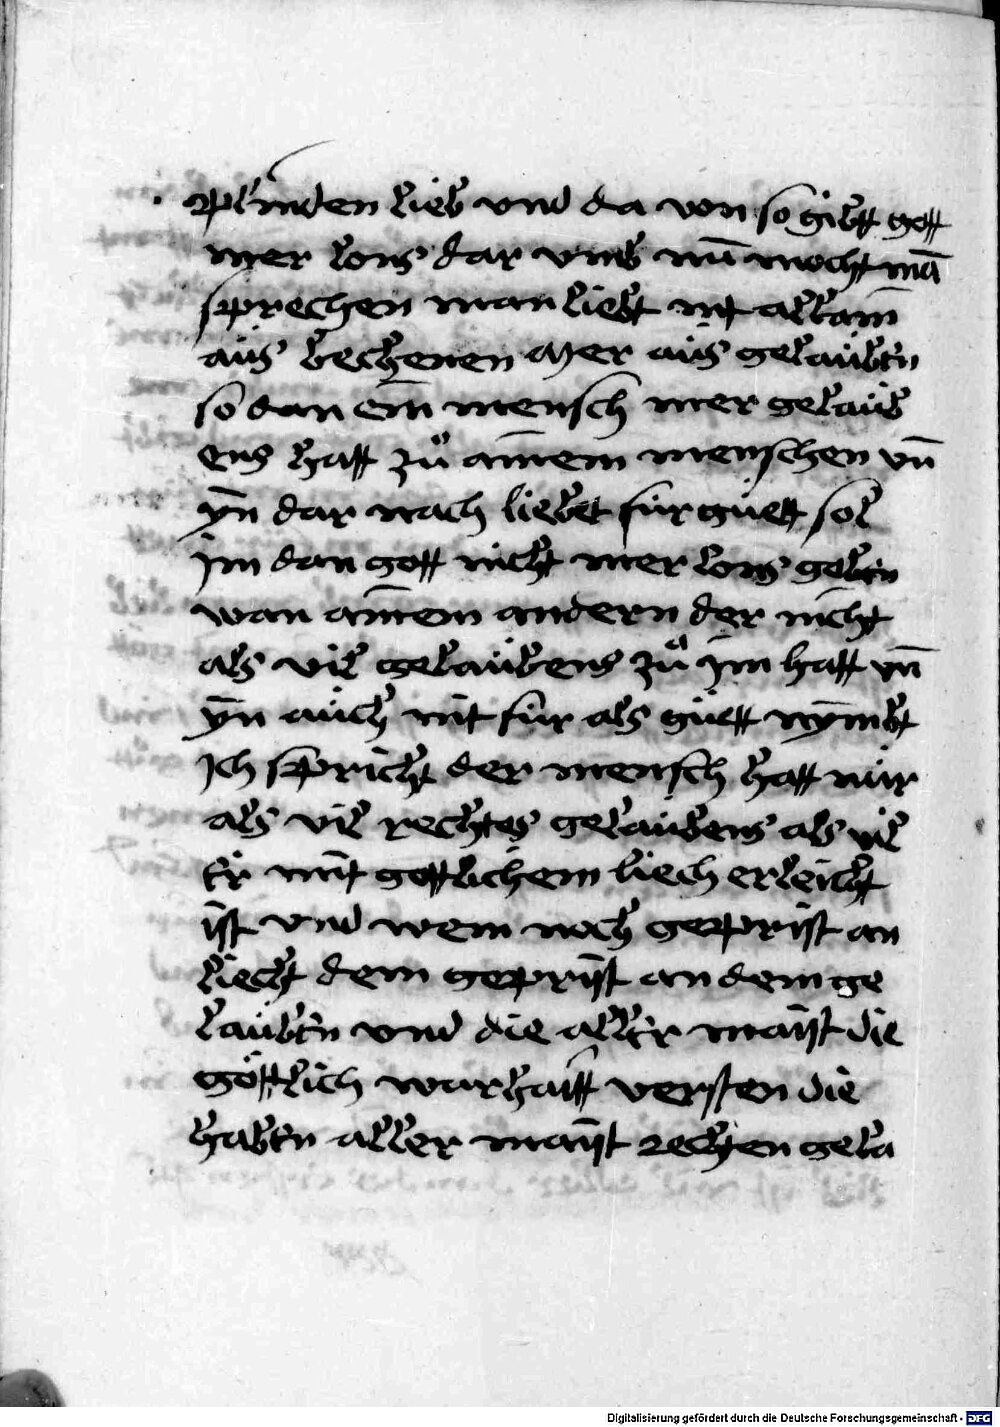 Plinden lieb vnd da von so gibtt gott
mer lons dar vmb nū mocht mā
sprechen man liebt nit allain̄
aus bechenen Mer aus gelaubtn
so dan ein mensch mer gelaub
ens hatt zů ainem menschen vn̄
ȳn dar nach liebet fur guett sol
Im dan gott nicht mer lons gebtn
wan ainem andern der nicht
als vil gelaubens zů im hatt vn̄
ȳn auch nit fur als guett nymbt
Ich spricht der mensch hatt nur
als vil rechtes gelaubens als vil
Er mit gottlichem liech erleicht
ist vnd wem noch geprist an
liecht dem geprist an dem ge
laubtn vnd die aller maist die
göttlich warhaitt versten die
habtn aller maist rechten gela